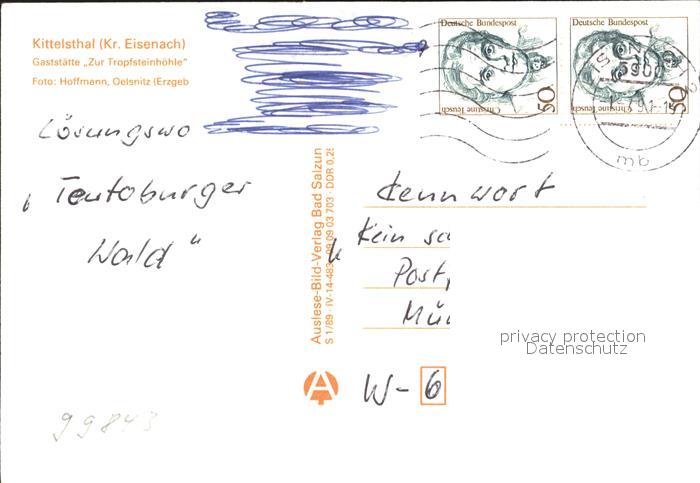 Kittelsthal (Kr. Eisenach)
Gaststätte „Zur Tropfsteinhöhle"
Foto: Hoffmann, Oelsnitz (Erzgeb
Lösungswo
„Teutoburger
Wald"
99843
Auslese-Bild-Verlag Bad Salzun
S 1/89 · IV-14-483 09 09 03 703 · DDR 0,2
Deutsche Bundespost
50
Christine Teusch
Deutsche Bundespost
50
Christine Teusch
5900
mb
Kennwort
Kein
Post
Mün
A
W-6
privacy protection
Datenschutz